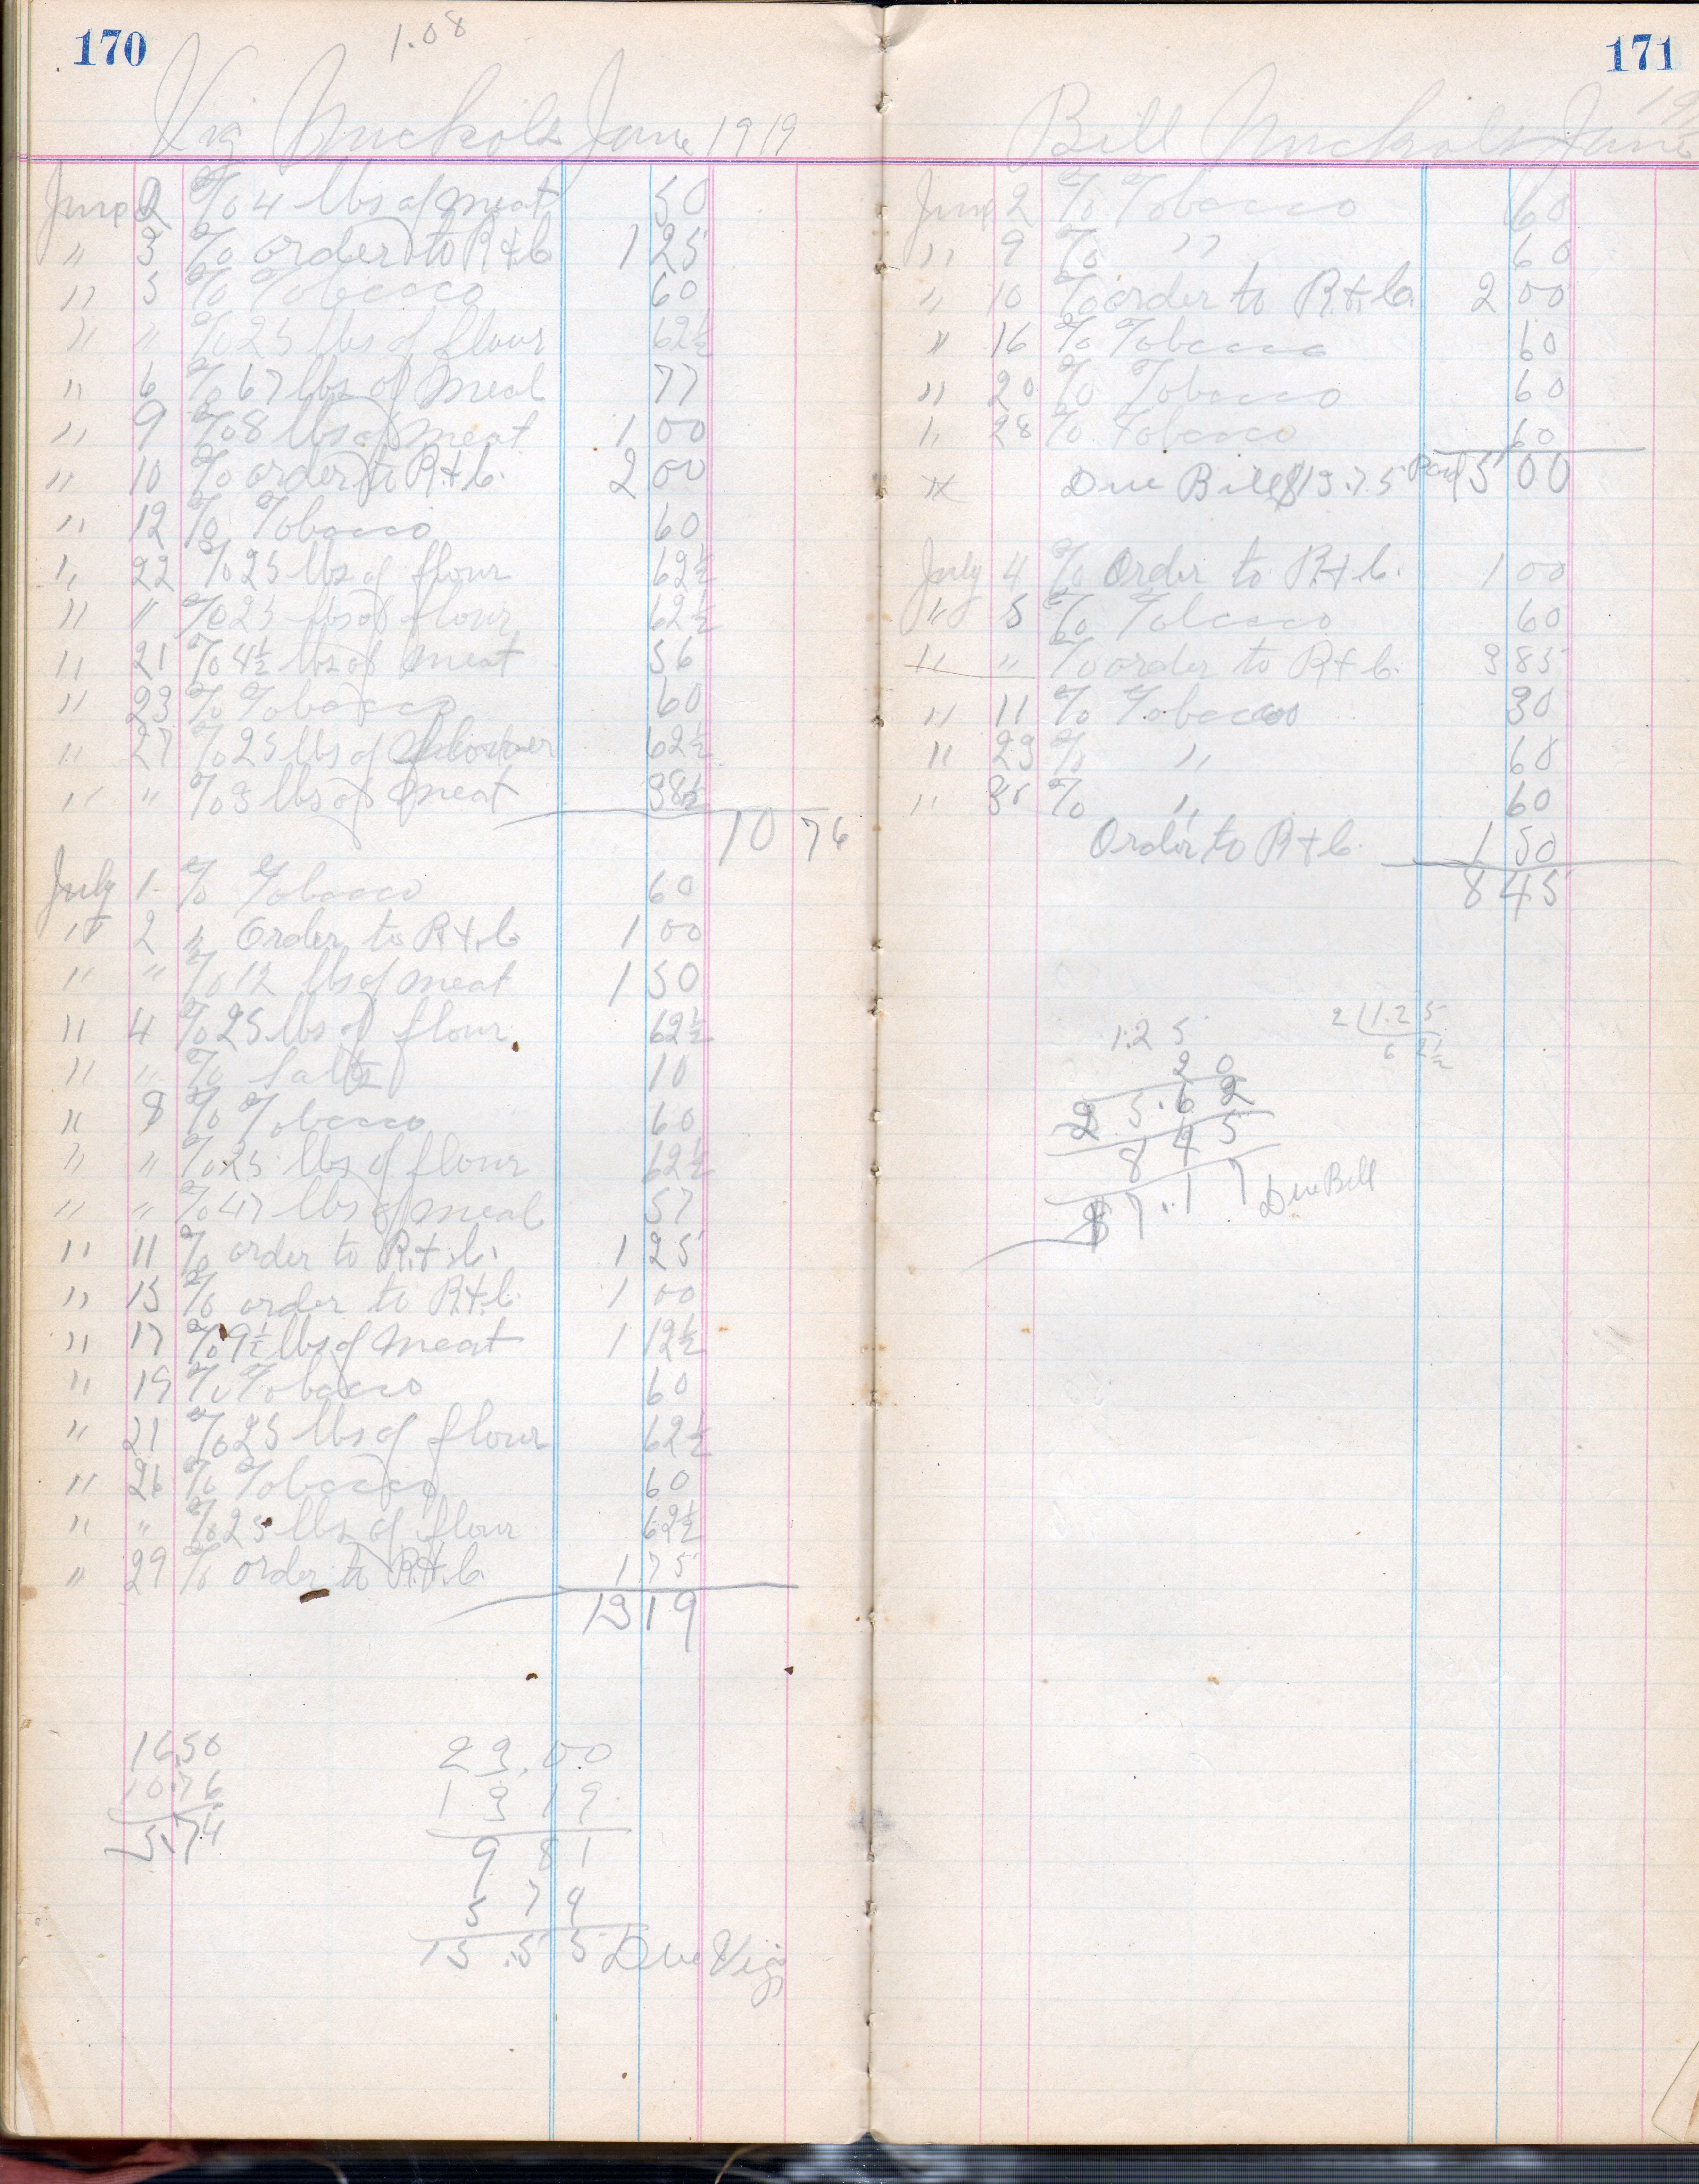 170
1.08
Vig Nickols June 1919
June 2 % 4 lbs of meat 50
" 3 % order to R+b. 1 25
" 5 % Tobacco 60
" " % 25 lbs of flour 62½
" 6 % 67 lbs of Meal 77
" 9 % 8 lbs of meat 1 00
" 10 % order to R.+b. 2 00
" 12 % Tobacco 60
" 22 % 25 lbs of flour 62½
" " % 25 lbs of flour 62½
" 21 % 4½ lbs of meat 56
" 23 % Tobacco 60
" 27 % 25 lbs of 62½
" " % 3 lbs of meat 38½
10 76
July 1 % Tobacco 60
" 2 " Order to R.+.b 1 00
" " % 12 lbs of meat 1 50
" 4 % 25 lbs of flour 62½
" " % Salts 10
" 8 % Tobacco 60
" " % 25 lbs of flour 62½
" " % 47 lbs of meal 57
" 11 % order to R.+.b. 1 25
" 15 % order to R.+.b. 1 00
" 17 % 9½ lbs of meat 1 12½
" 19 % Tobacco 60
" 21 % 25 lbs of flour 62½
" 26 % Tobacco 60
" " % 25 lbs of flour 62½
" 29 % order to R.+.b. 1 75
13 19
16.50
10.76
5.74
23.00
13 19
9 81
5 74
15.55 Due Vig
171
Bill Nickols June 19
June 2 % Tobacco 60
" 9 % " 60
" 10 % order to R.+.b. 2 00
" 16 % Tobacco 60
" 20 % Tobacco 60
" 28 % Tobacco 60
Due Bill $13.75 Paid 5 00
July 4 % Order to R.+b. 1 00
" 5 % Tobacco 60
" " % order to R+b. 3 85
" 11 % Tobacco 30
" 23 % " 60
" 30 % " 60
Order to R+b. 1 50
8 45
1.25
20
2 1.25
6 2½
25.62
8 45
17.17 Due Bill